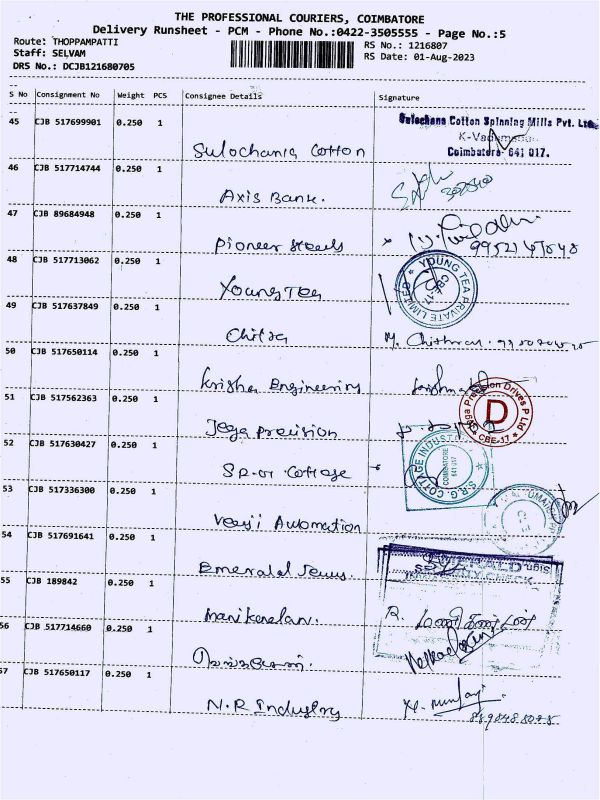 THE PROFESSIONAL COURIERS, COIMBATORE
Delivery Runsheet - PCM - Phone No.:0422-3505555 - Page No.:5
Route: THOPPAMPATTI RS No.: 1216807
Staff: SELVAM RS Date: 01-Aug-2023
DRS No.: DCJB121680705
S No Consignment No Weight PCS Consignee Details Signature
45 CJB 517699901 0.250 1 Sulochana Cotton Spinning Mills Pvt. Ltd.
K-Vadamadurai
Coimbatore- 641 017.
Sulochana Cotton
46 CJB 517714744 0.250 1
Axis Bank.
47 CJB 89684948 0.250 1
Pioneer Steels
48 CJB 517713062 0.250 1 YOUNG TEA PRIVATE LIMITED
CBE-17
Young Tea
49 CJB 517637849 0.250 1
Chitra
50 CJB 517650114 0.250 1
Krisha Engineering
51 CJB 517562363 0.250 1 Jaga Precision Drives P Ltd
D
CBE-17
Jega Precision
52 CJB 517630427 0.250 1 S.R.G. COTTAGE INDUST
COIMBATORE
641 017
SR.G Cottage
53 CJB 517336300 0.250 1
Veeji Automation
54 CJB 517691641 0.250 1
Emerald
55 CJB 189842 0.250 1
Manikandan. R. மணிகண்டன்
56 CJB 517714660 0.250 1
57 CJB 517650117 0.250 1
N.R Industry